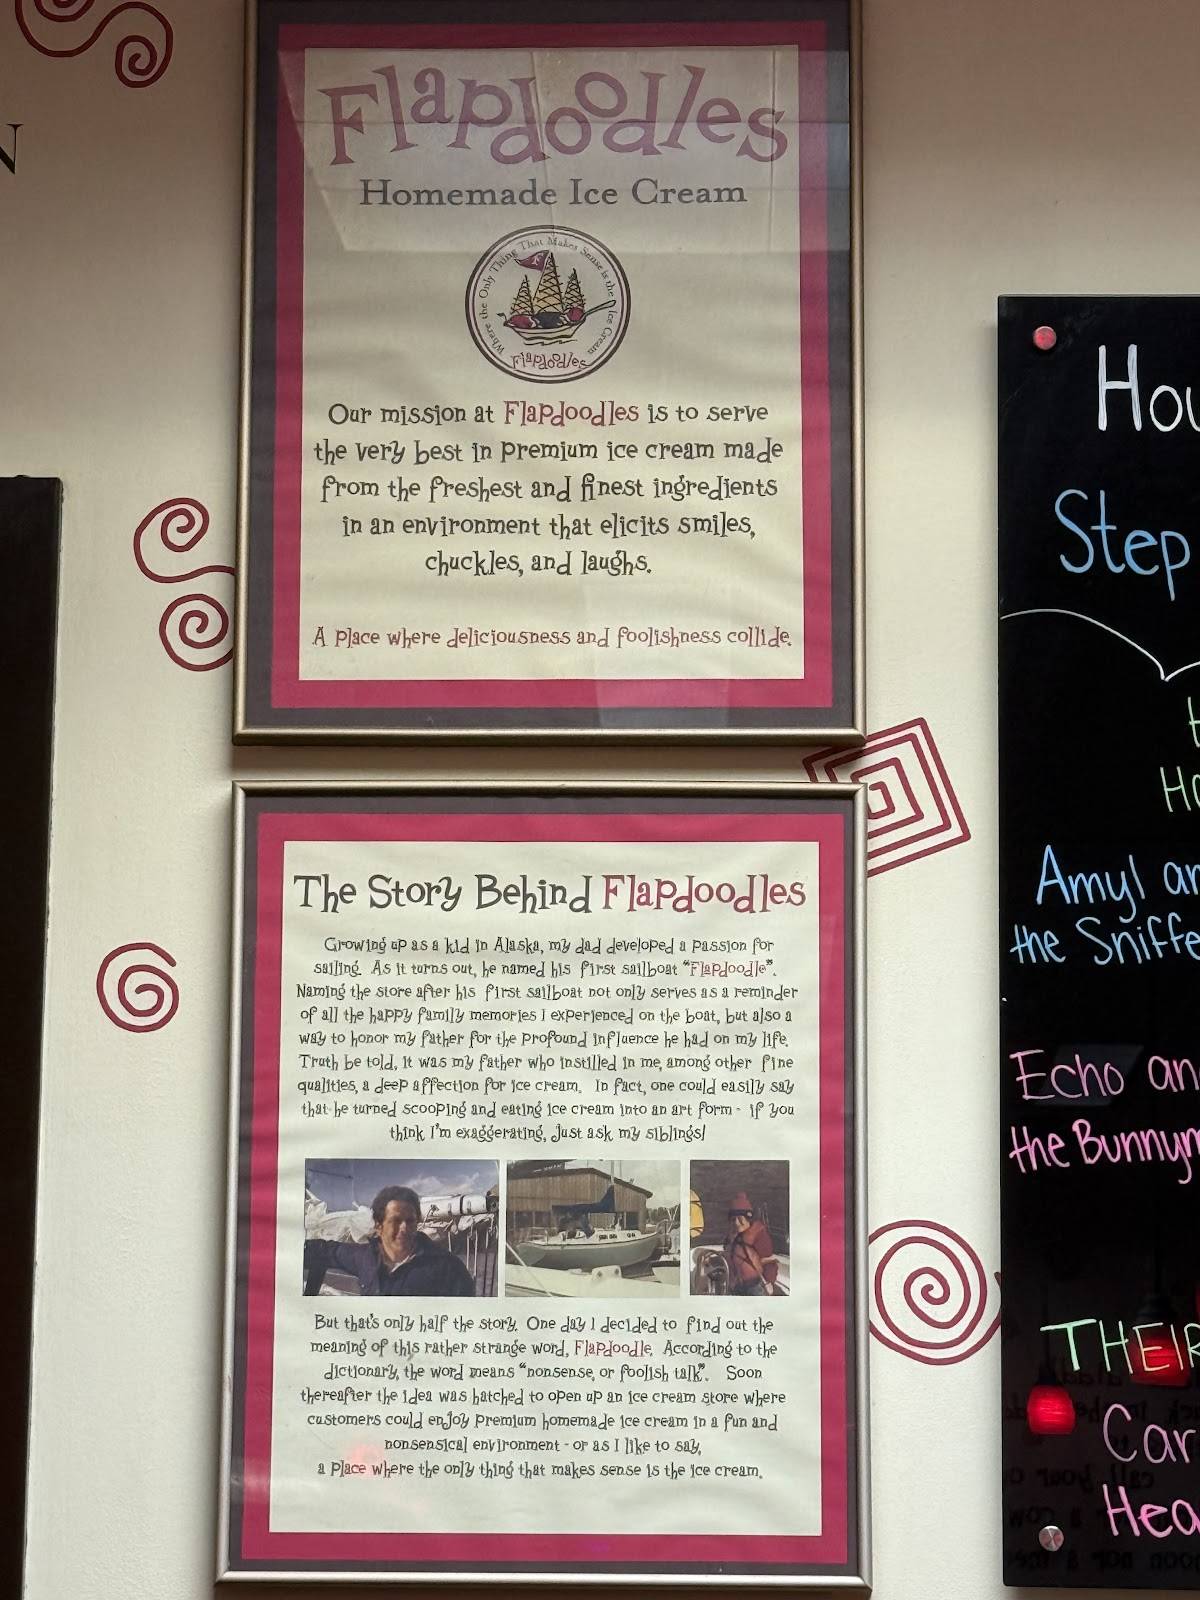 N
Flapdoodles
Homemade Ice Cream
Where the Only Thing That Makes Sense is the Ice Cream
F
Flapdoodles
Our mission at Flapdoodles is to serve
the very best in premium ice cream made
from the freshest and finest ingredients
in an environment that elicits smiles,
chuckles, and laughs.
A place where deliciousness and foolishness collide.
The Story Behind Flapdoodles
Growing up as a kid in Alaska, my dad developed a passion for
sailing. As it turns out, he named his first sailboat "Flapdoodle".
Naming the store after his first sailboat not only serves as a reminder
of all the happy family memories I experienced on the boat, but also a
way to honor my father for the profound influence he had on my life.
Truth be told, it was my father who instilled in me, among other fine
qualities, a deep affection for ice cream. In fact, one could easily say
that he turned scooping and eating ice cream into an art form - if you
think I'm exaggerating, just ask my siblings!
But that's only half the story. One day I decided to find out the
meaning of this rather strange word, Flapdoodle. According to the
dictionary, the word means "nonsense, or foolish talk". Soon
thereafter the idea was hatched to open up an ice cream store where
customers could enjoy premium homemade ice cream in a fun and
nonsensical environment - or as I like to say,
a place where the only thing that makes sense is the ice cream.
Hou
Step
Ho
Amyl an
the Sniffe
Echo an
the Bunnym
THEIR
Car
Hea